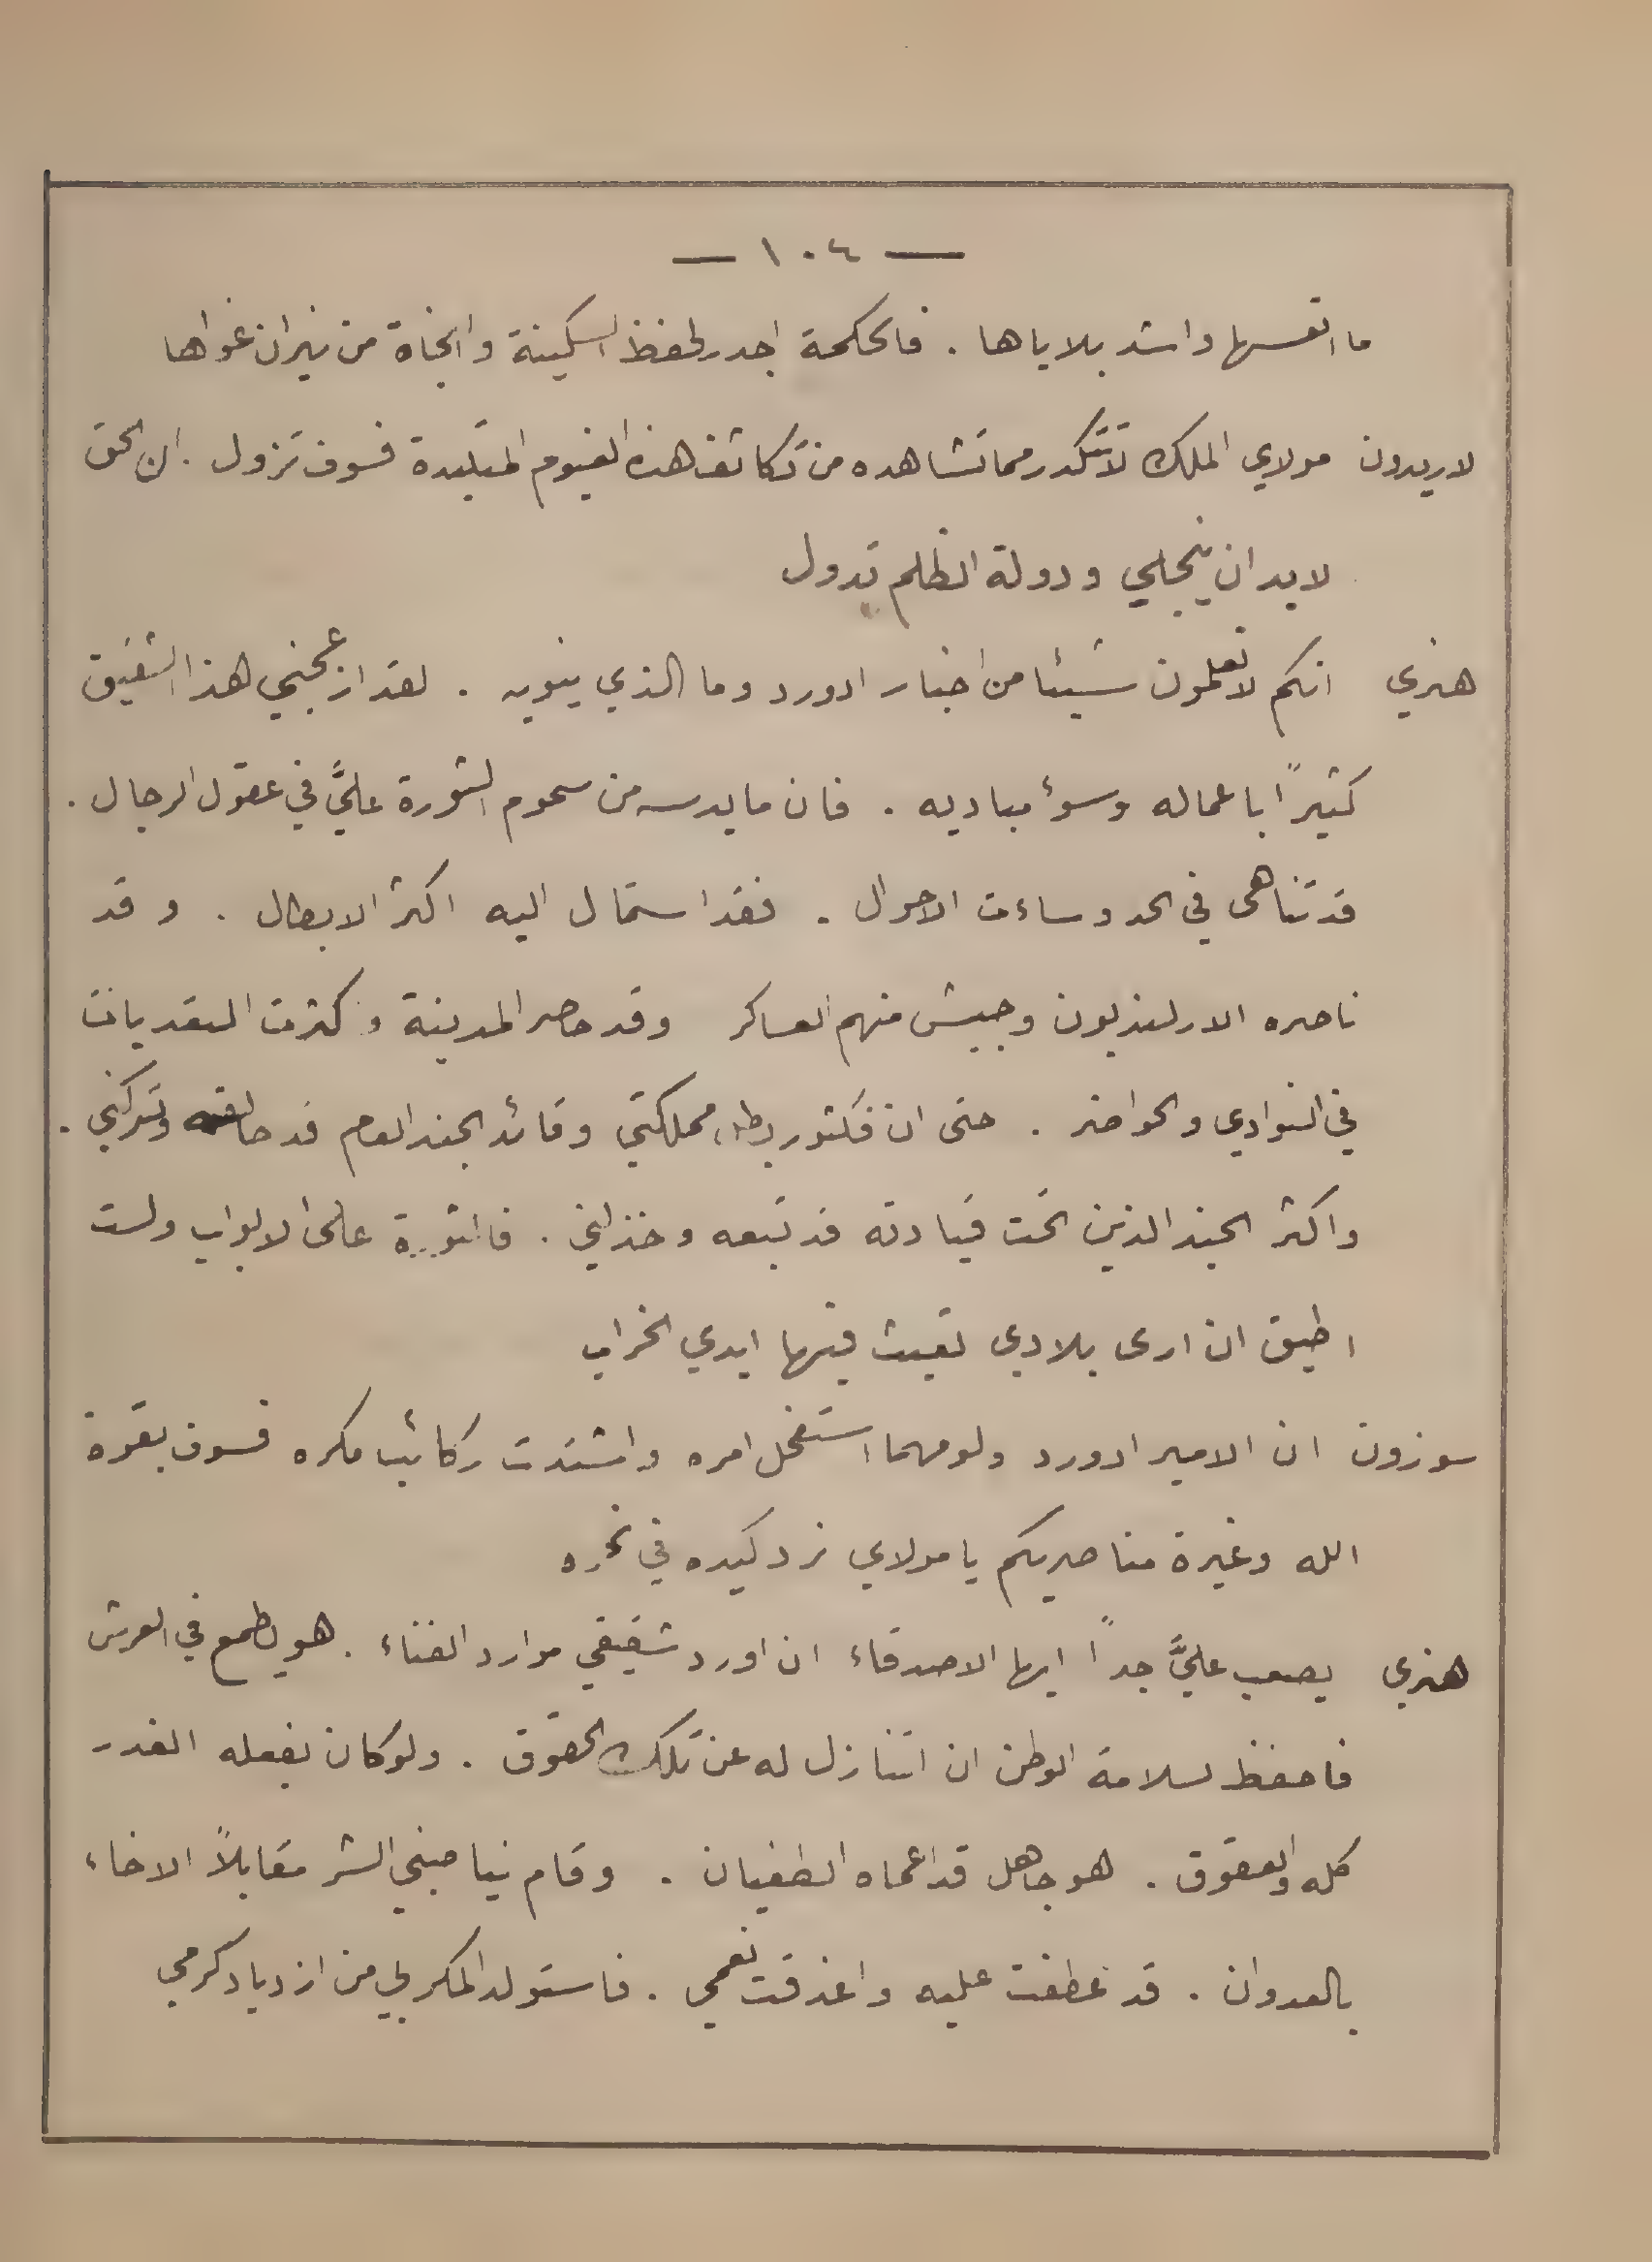 — ١٠٤ —
ما اتعسها واشد بلاياها . فالحكمة اجدر لحفظ السكينة والنجاة من نيران غواها
لاريدون مولاي الملك لا تتكدر مما تشاهده من تكاثف هذه الغيوم المتلبدة فسوف تزول . ان الحق
لا بد ان ينجلي ودولة الظلم تدول
هنري انكم لا تعلمون شيئا من اخبار ادورد وما الذي ينويه . لقد ازعجني هذا الشقيق
كثيراً باعماله وسوء مباديه . فان ما يدسه من سموم الثورة عليَّ في عقول الرجال .
قد تناهى في الحد وساءت الاحوال . فقد استمال اليه اكثر الابطال . وقد
ناصره الارلنديون وجيش منهم العساكر وقد حاصر المدينة وكثرت التعديات
في النوادي والحواضر . حتى ان فكتور بطل مملكتي وقائد الجند العام قد حالفه وتركني .
واكثر الجند الذين تحت قيادته قد تبعه وخذلني . فالثورة على الابواب ولست
اطيق ان ارى بلادي تعيث فيها ايدي الخراب
سوزون ان الامير ادورد ولو مهما استفحل امره واشتدت ركائب مكره فسوف بقوة
الله وغيرة مناصريكم يا مولاي نرد كيده في نحره
هنري يصعب عليَّ جداً ايها الاصدقاء ان اورد شقيقي موارد الفناء . هو يطمع في العرش
فاحفظ لسلامة الوطن ان اتنازل له عن تلك الحقوق . ولو كان بفعله الغدر
كله والعقوق . هو جاهل قد اعماه الطغيان . وقام يناصبني الشر مقابلاً الاخاء
بالعدوان . قد عطفت عليه واغدقت نعمي . فاستولد المكر لي من ازدياد كرمي